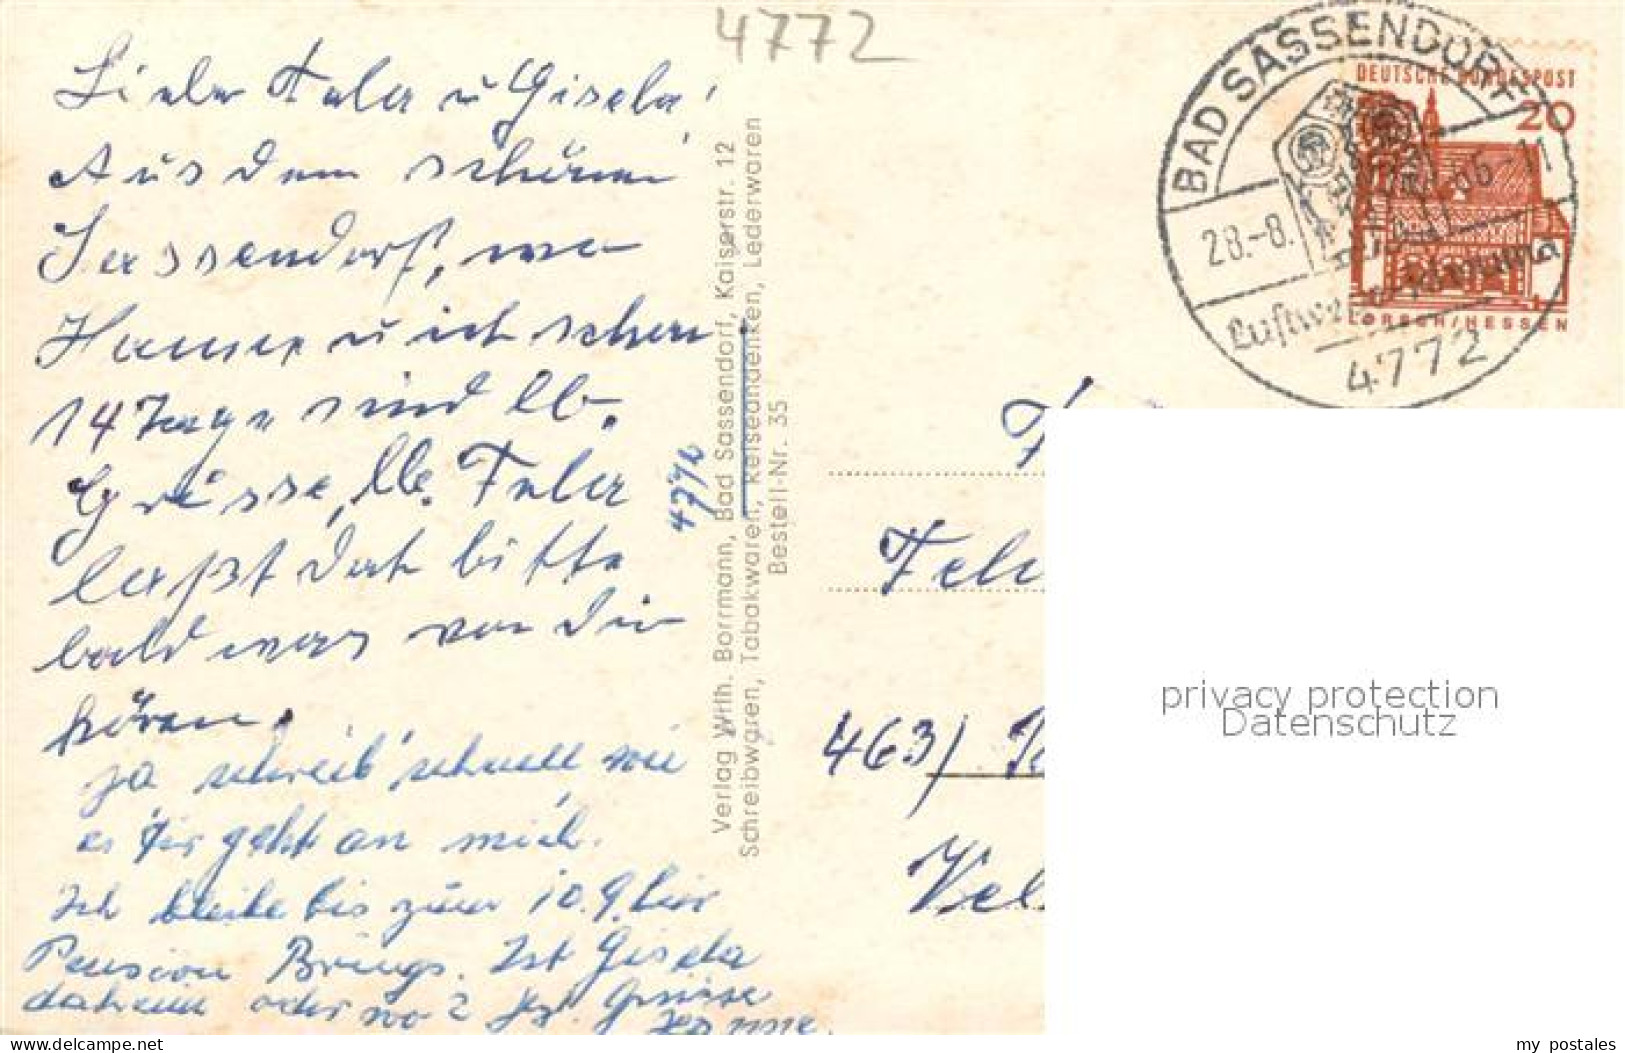 4772
Lieber Feler u Gisela!
Aus dem schönen
Sassendorf, wo
Hanne u ich schon
14 Tage sind lb.
Grüsse, lb. Feler
laßt doch bitte
bald was von Dir
hören.
ja schreib' schnell wie
es Dir geht an mich.
Ich bleibe bis zum 10.9. hier
Pension Brings. Ist Gisela
daheim oder wo? Hzl. Grüsse
Hanne.
4770
Verlag Wilh. Borrmann, Bad Sassendorf, Kaiserstr. 12
Schreibwaren, Tabakwaren, Reiseandenken, Lederwaren
Bestell-Nr. 35
BAD SASSENDORF
28.-8. 66-11
4772
DEUTSCHE BUNDESPOST
20
LORSCH/HESSEN
F
463)
Vel
privacy protection
Datenschutz
www.delcampe.net
my_postales